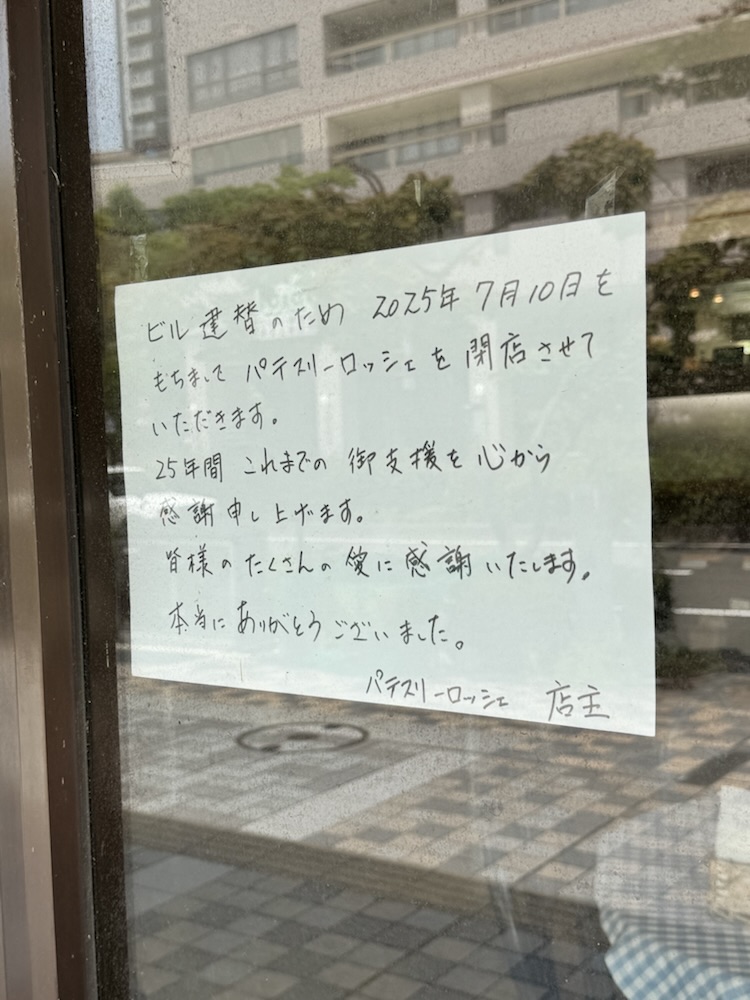 ビル建替のため 2025年7月10日を
もちまして パテスリーロッシェを閉店させて
いただきます。
25年間 これまでの 御支援を 心から
感謝申し上げます。
皆様の たくさんの 愛に 感謝いたします。
本当に ありがとうございました。
パテスリーロッシェ 店主